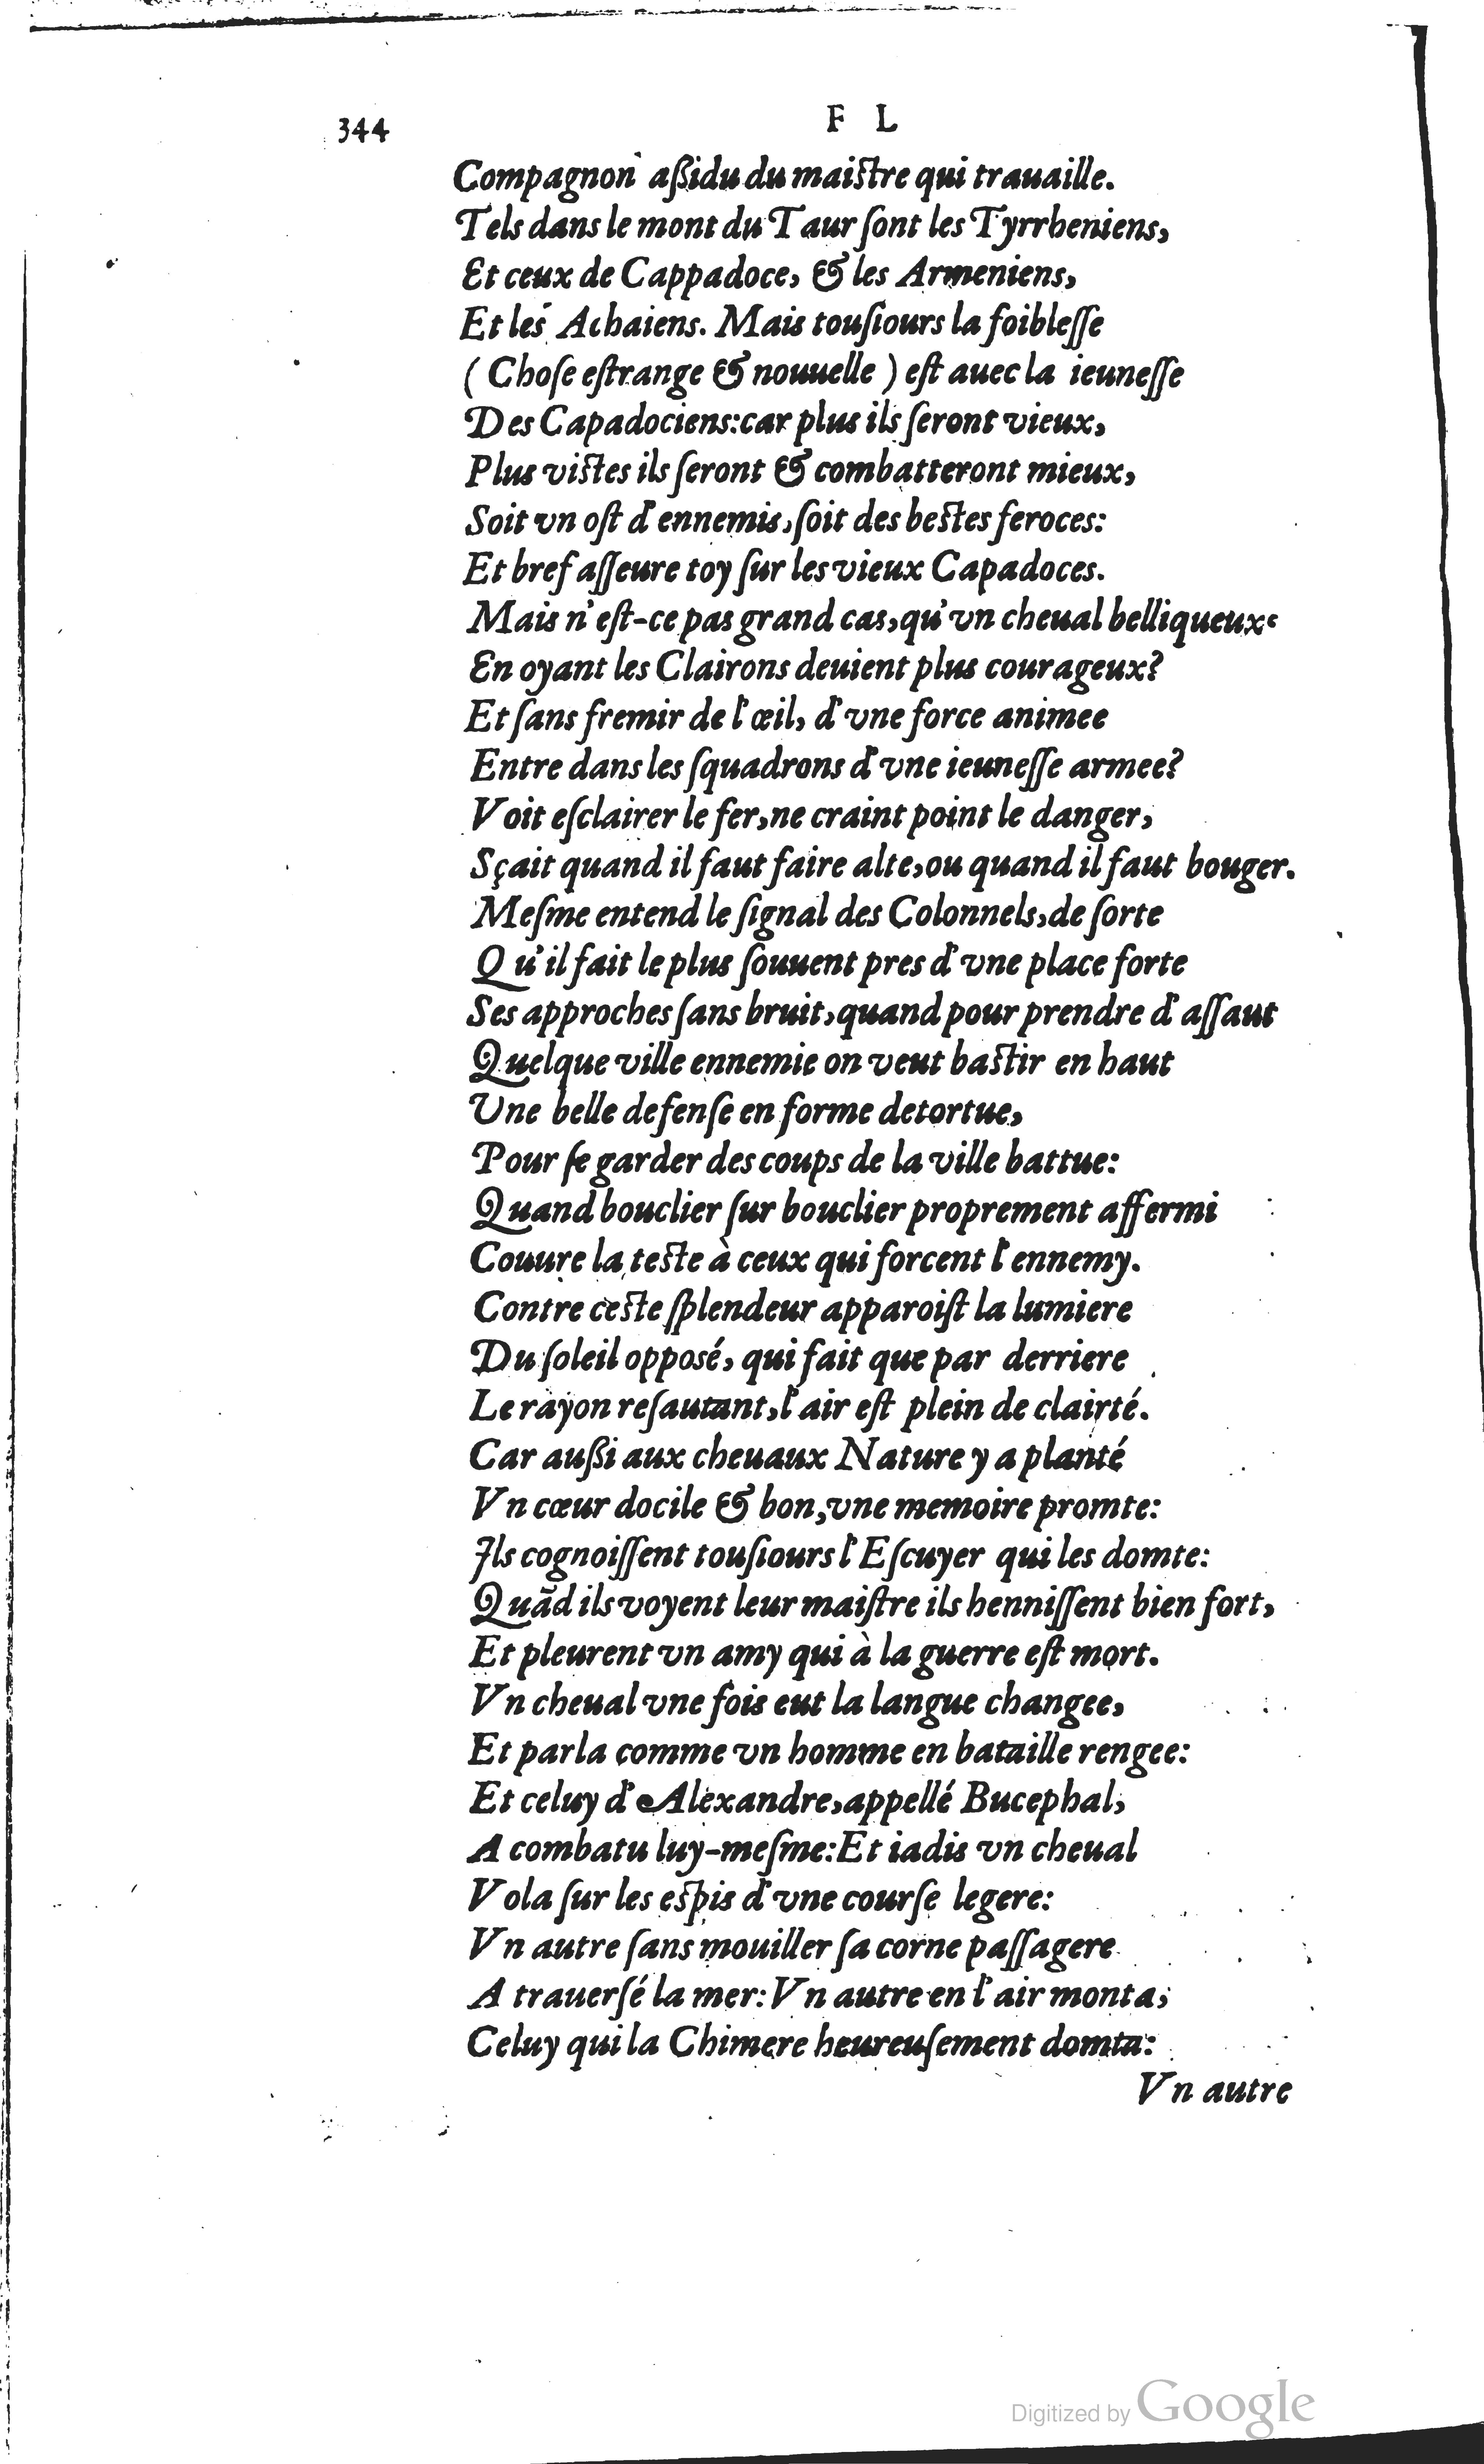 344
F L
Compagnon aßidu du maiſtre qui trauaille.
Tels dans le mont du Taur ſont les Tyrrheniens,
Et ceux de Cappadoce, & les Armeniens,
Et les Achaiens. Mais touſiours la foibleſſe
( Choſe eſtrange & nouuelle ) eſt auec la ieuneſſe
Des Capadociens:car plus ils ſeront vieux,
Plus viſtes ils ſeront & combatteront mieux,
Soit vn oſt d'ennemis,ſoit des beſtes feroces:
Et bref aſſeure toy ſur les vieux Capadoces.
Mais n'eſt-ce pas grand cas,qu'vn cheual belliqueux
En oyant les Clairons deuient plus courageux?
Et ſans fremir de l'œil, d'vne force animee
Entre dans les ſquadrons d'vne ieuneſſe armee?
Voit eſclairer le fer,ne craint point le danger,
Sçait quand il faut faire alte,ou quand il faut bouger.
Meſme entend le ſignal des Colonnels,de ſorte
Qu'il fait le plus ſouuent pres d'vne place forte
Ses approches ſans bruit,quand pour prendre d'aſſaut
Quelque ville ennemie on veut baſtir en haut
Une belle defenſe en forme detortue,
Pour ſe garder des coups de la ville battue:
Quand bouclier ſur bouclier proprement affermi
Couure la teſte à ceux qui forcent l'ennemy.
Contre ceſte ſplendeur apparoiſt la lumiere
Du ſoleil opposé, qui fait que par derriere
Le rayon reſautant,l'air eſt plein de clairté.
Car außi aux cheuaux Nature y a planté
Vn cœur docile & bon,vne memoire promte:
Ils cognoiſſent touſiours l'Eſcuyer qui les domte:
Quãd ils voyent leur maiſtre ils henniſſent bien fort,
Et pleurent vn amy qui à la guerre eſt mort.
Vn cheual vne fois eut la langue changee,
Et parla comme vn homme en bataille rengee:
Et celuy d'Alexandre,appellé Bucephal,
A combatu luy-meſme:Et iadis vn cheual
Vola ſur les eſpis d'vne courſe legere:
Vn autre ſans mouiller ſa corne paſſagere
A trauerſé la mer:Vn autre en l'air monta,
Celuy qui la Chimere heureuſement domta:
Vn autre
Digitized by Google